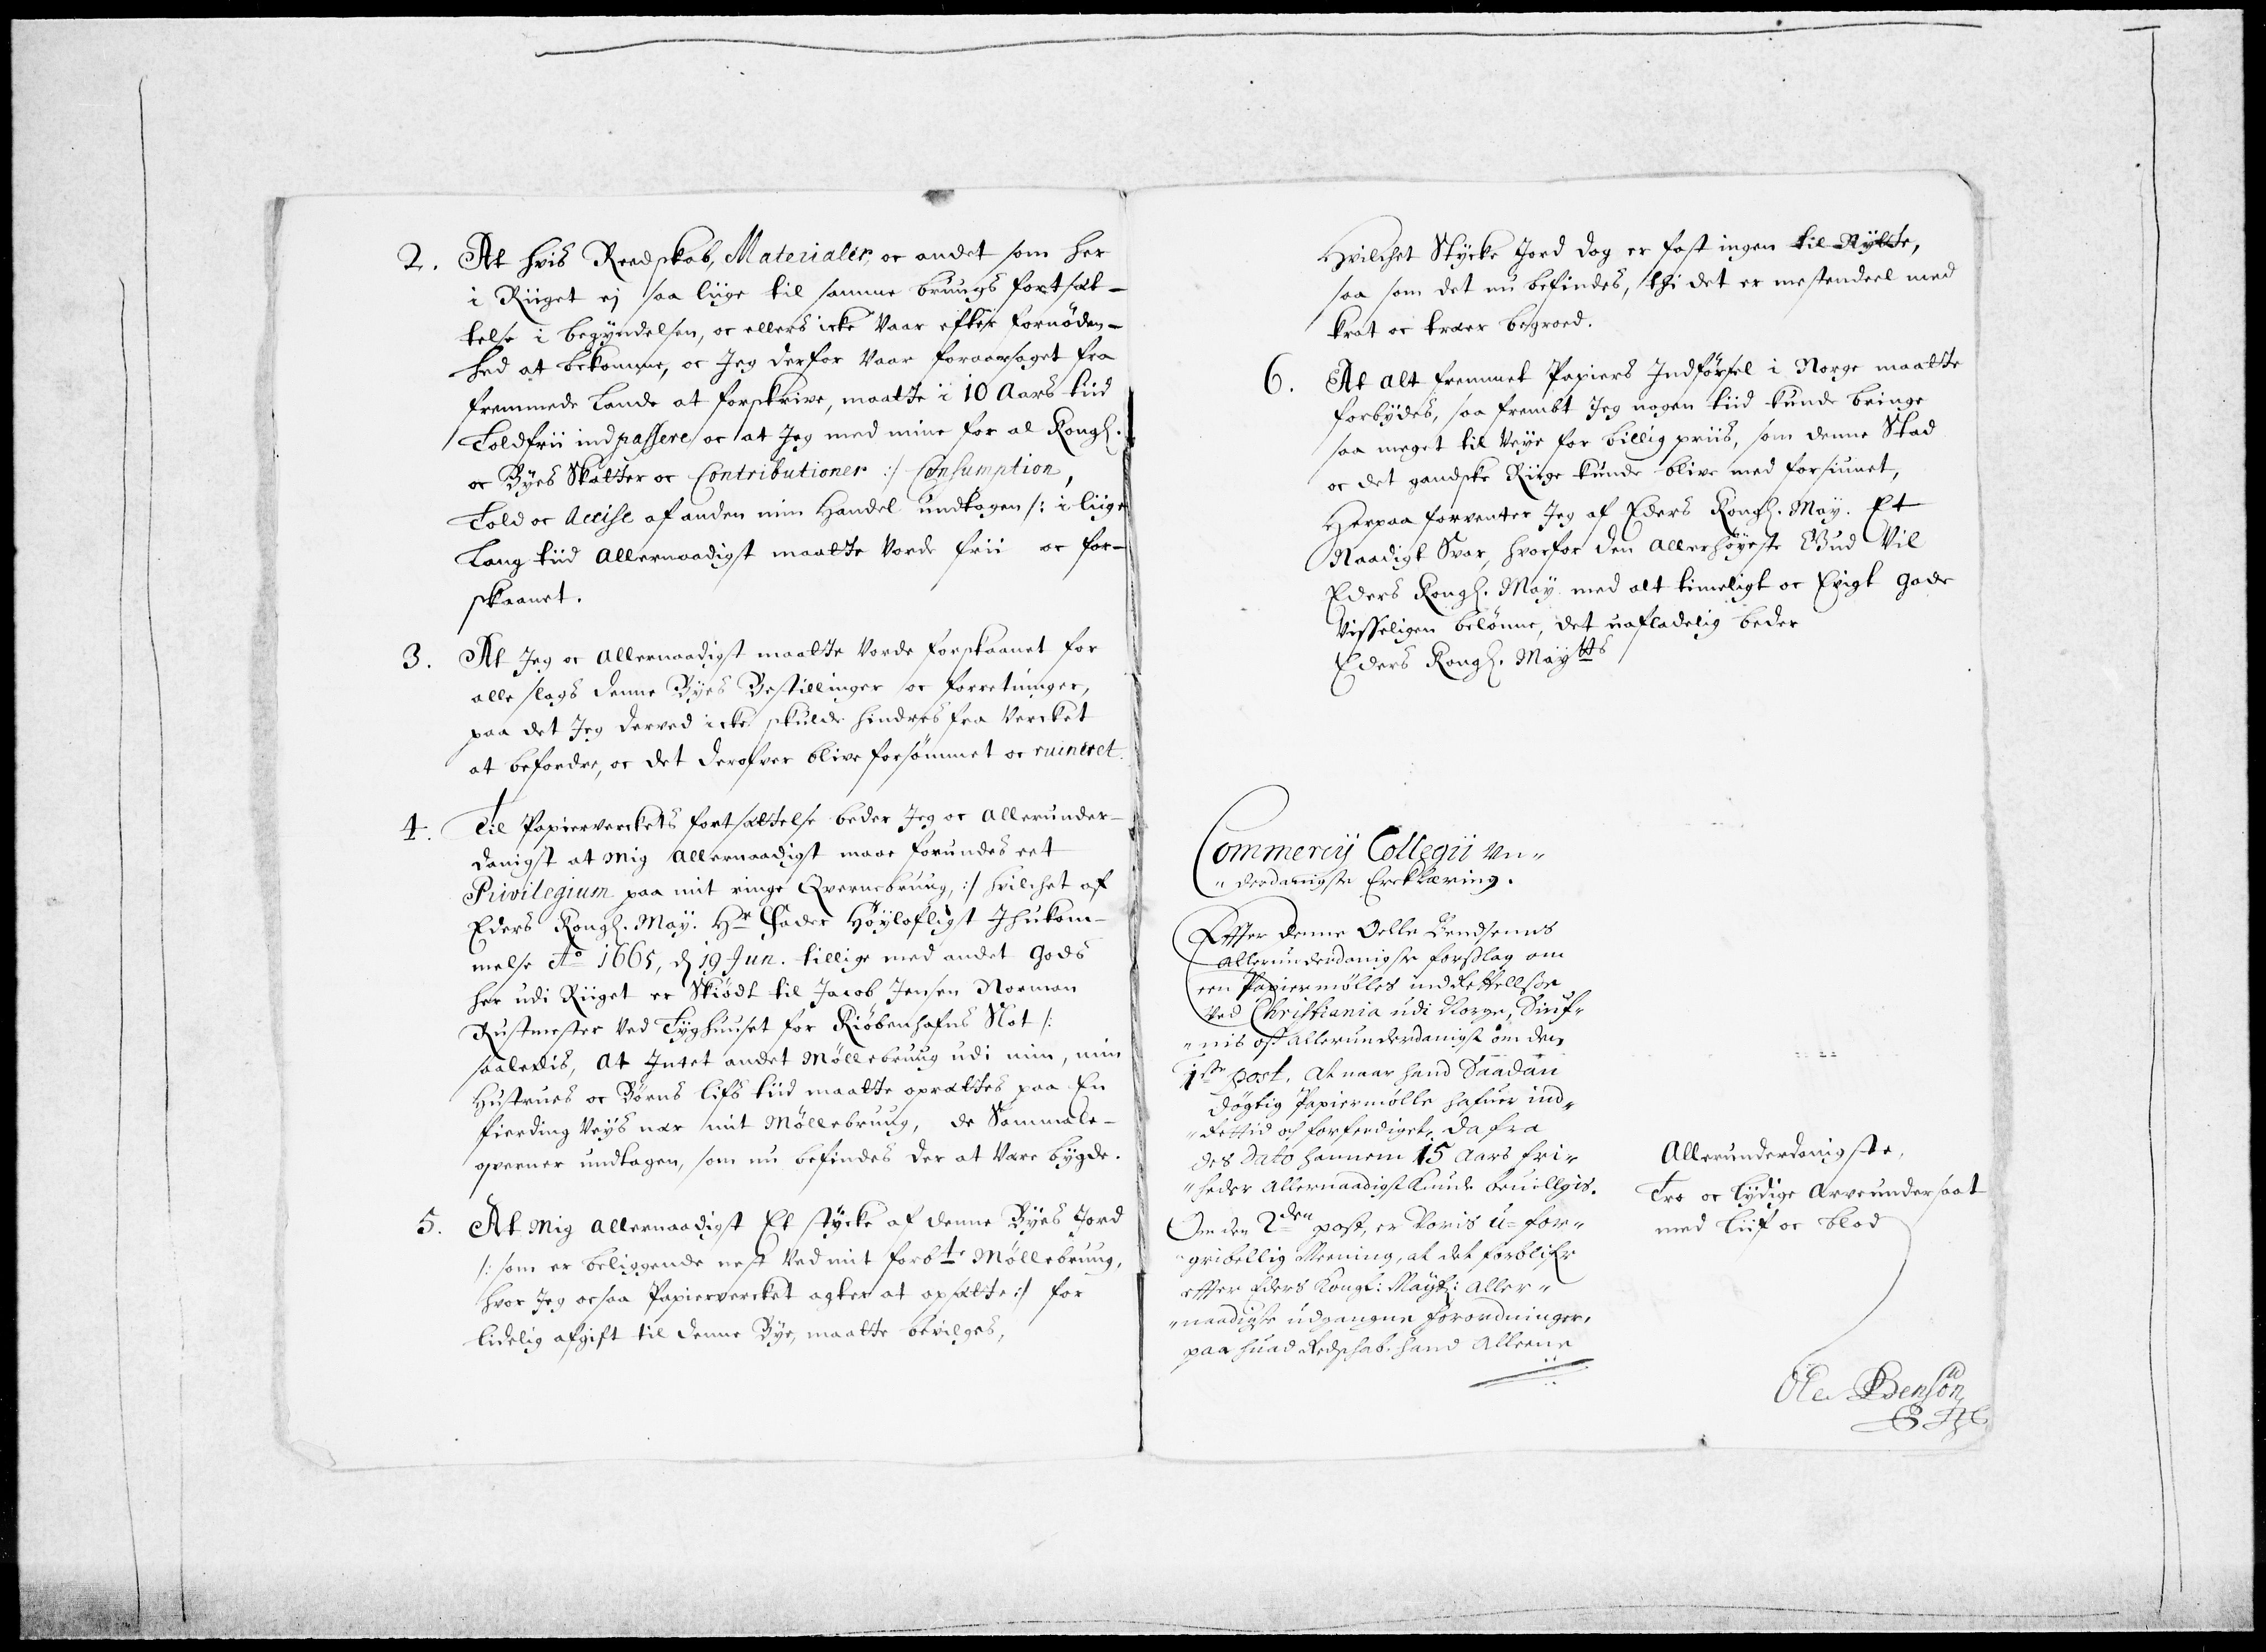 2. At hvis Reedskab, Materialer, oc andet som her
i Riiget ej saa liige til samme bruugs fortsæt-
telse i begyndelsen, oc ellers icke Vaar efter fornöden-
hed at bekomme, oc Jeg derfor Vaar foraarsaget fra
fremmede Lande at forskrive, maatte i 10 Aars tiid
Toldfrii indpassere oc at Jeg med mine for al Kongl.
oc Byes Skatter oc Contributioner :/ Consumption,
Told oc Accise af anden min Handel undtagen /: i liige
Lang tiid Allernaadigst maatte Vorde frii oc for-
skaanet.
3. At Jeg oc Allernaadigst maatte Vorde forskaanet for
alle slags denne Byes Bestillinger oc forretninger,
paa det Jeg derved icke skulde hindres fra Vercket
at befordre, oc det derofver blive forsömmet oc ruineret.
4. Til Papierverckets fortsættelse beder Jeg oc Allerunder-
danigst at mig Allernaadigst maae forundes eet
Privilegium paa mit ringe Qvernebruug, :/ hvilchet af
Eders Kongl. May. Hr Fader Höylofligst Ihukom-
melse Ao 1665, d 19 Jun. tillige med andet Gods
her udi Riiget er Skiödt til Jacob Jensen Norman
Rustmester Ved Tyghuuset for Kiöbenhafns Slot /:
saaledis, At Intet andet Möllebruug udi min, min
Hustrues oc Börns lifs tiid maatte oprættes paa En
fierding Veys nær mit Möllebruug, de Sammale-
qverner undtagen, som nu befindes der at Være bygde.
5. At mig Allernaadigst Et stycke af denne Byes Jord
/: som er beliggende nest Ved mit forbte Möllebruug,
hvor Jeg ocsaa Papiervercket agter at opsætte :/ for
lidelig afgift til denne Bye, maatte bevilges,
Hvilchet Stycke Jord dog er fast ingen til Nytte,
saa som det nu befindes, thi det er mestendeel med
krat oc træer begroed.
6. At Alt fremmet Papiers Indförsel i Norge maatte
forbydes, saa frembt Jeg nogen tiid kunde bringe
saa meget til Veye for billig priis, som denne Stad
oc det gandske Riige kunde blive med forsiunet,
Herpaa forventer Jeg af Eders Kongl. May. Et
Naadigt Svar, hvorfor den Allerhöyeste Gud Vil
Eders Kongl. May. med alt timeligt oc Evigt gode
Visseligen belönne, det uafladelig beder
Eders Kongl. Maytts
Commercij Collegii un-
derdanigste Ercklæring.
Effter denne Oelle Bendsenns
Allerunderdanigste forslag om
een Papiermölles indrettellsse
Ved Christiania udi Norge,
Allerunderdanigst om den
1ste post. At naar hand Saadan
dögtig Papiermölle hafuer ind-
rettid och forferdiget, da fra
des Dato hannem 15 Aars fri-
heder Allernaadigst kunde beuillgis.
Om den 2den post, er Voris u-for-
gribellig Meening, at det forblifr
effter Eders Kongl: Mayts: Aller-
naadigste udgangne forordninger,
paa huad Redschab hand Alleene
Allerunderdanigste,
Tro oc lydige Arveundersaat
med Liif oc blod
Ole Bensön